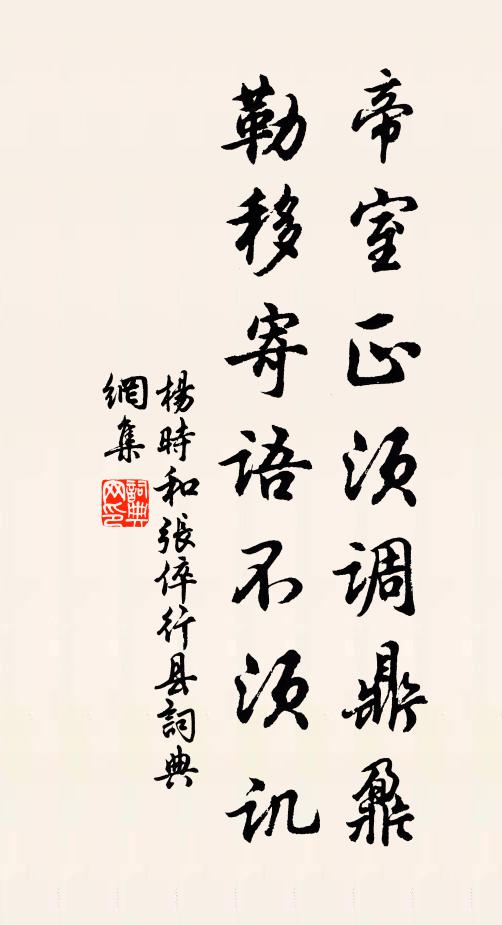 帝室正須調鼎鼐
勒移寄語不須訊
楊時和張倅行县詞典
網集
詞典網印